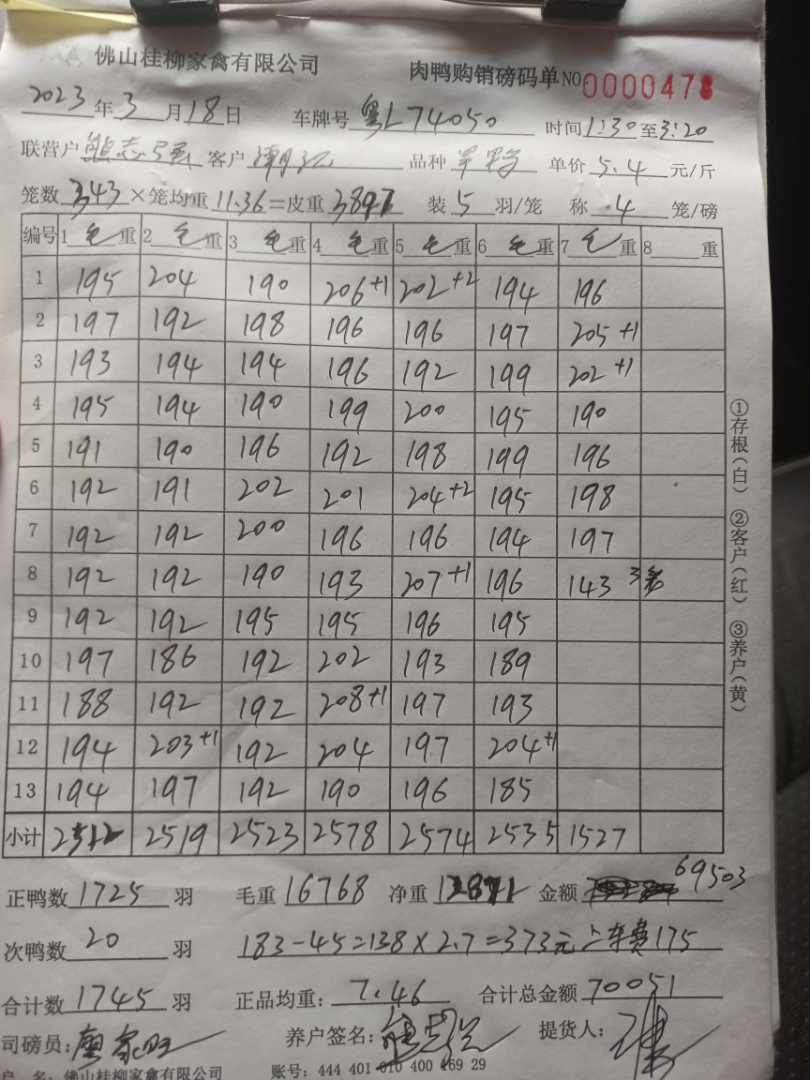 佛山桂柳家禽有限公司 肉鸭购销磅码单 NO 0000478
2023年3月18日 车牌号 粤L74050 时间1:30至3:20
联营户 客户 潮江 品种 单价5.4元/斤
笼数343×笼均重11.36=皮重3897 装5羽/笼 称4笼/磅
编号 1毛重 2毛重 3毛重 4毛重 5毛重 6毛重 7毛重 8重
1 195 204 190 206+1 202+2 194 196
2 197 192 198 196 196 197 205+1
3 193 194 194 196 192 199 202+1
4 195 194 190 199 200 195 190
5 191 190 196 192 198 199 196
6 192 191 202 201 204+2 195 198
7 192 192 200 196 196 194 197
8 192 192 190 193 207+1 196 143 3笼
9 192 192 195 195 196 195
10 197 186 192 202 193 189
11 188 192 192 208+1 197 193
12 194 203+1 192 204 197 204+1
13 194 197 192 190 196 185
小计 2512 2519 2523 2578 2574 2535 1527
正鸭数1725羽 毛重16768 净重12871 金额 69503
次鸭数20羽 183-45=138×2.7=373元 上车费175
合计数1745羽 正品均重:7.46 合计总金额70051
司磅员: 养户签名: 提货人:
户 名:佛山桂柳家禽有限公司 账号:444 401 010 400 469 29
①存根(白) ②客户(红) ③养户(黄)